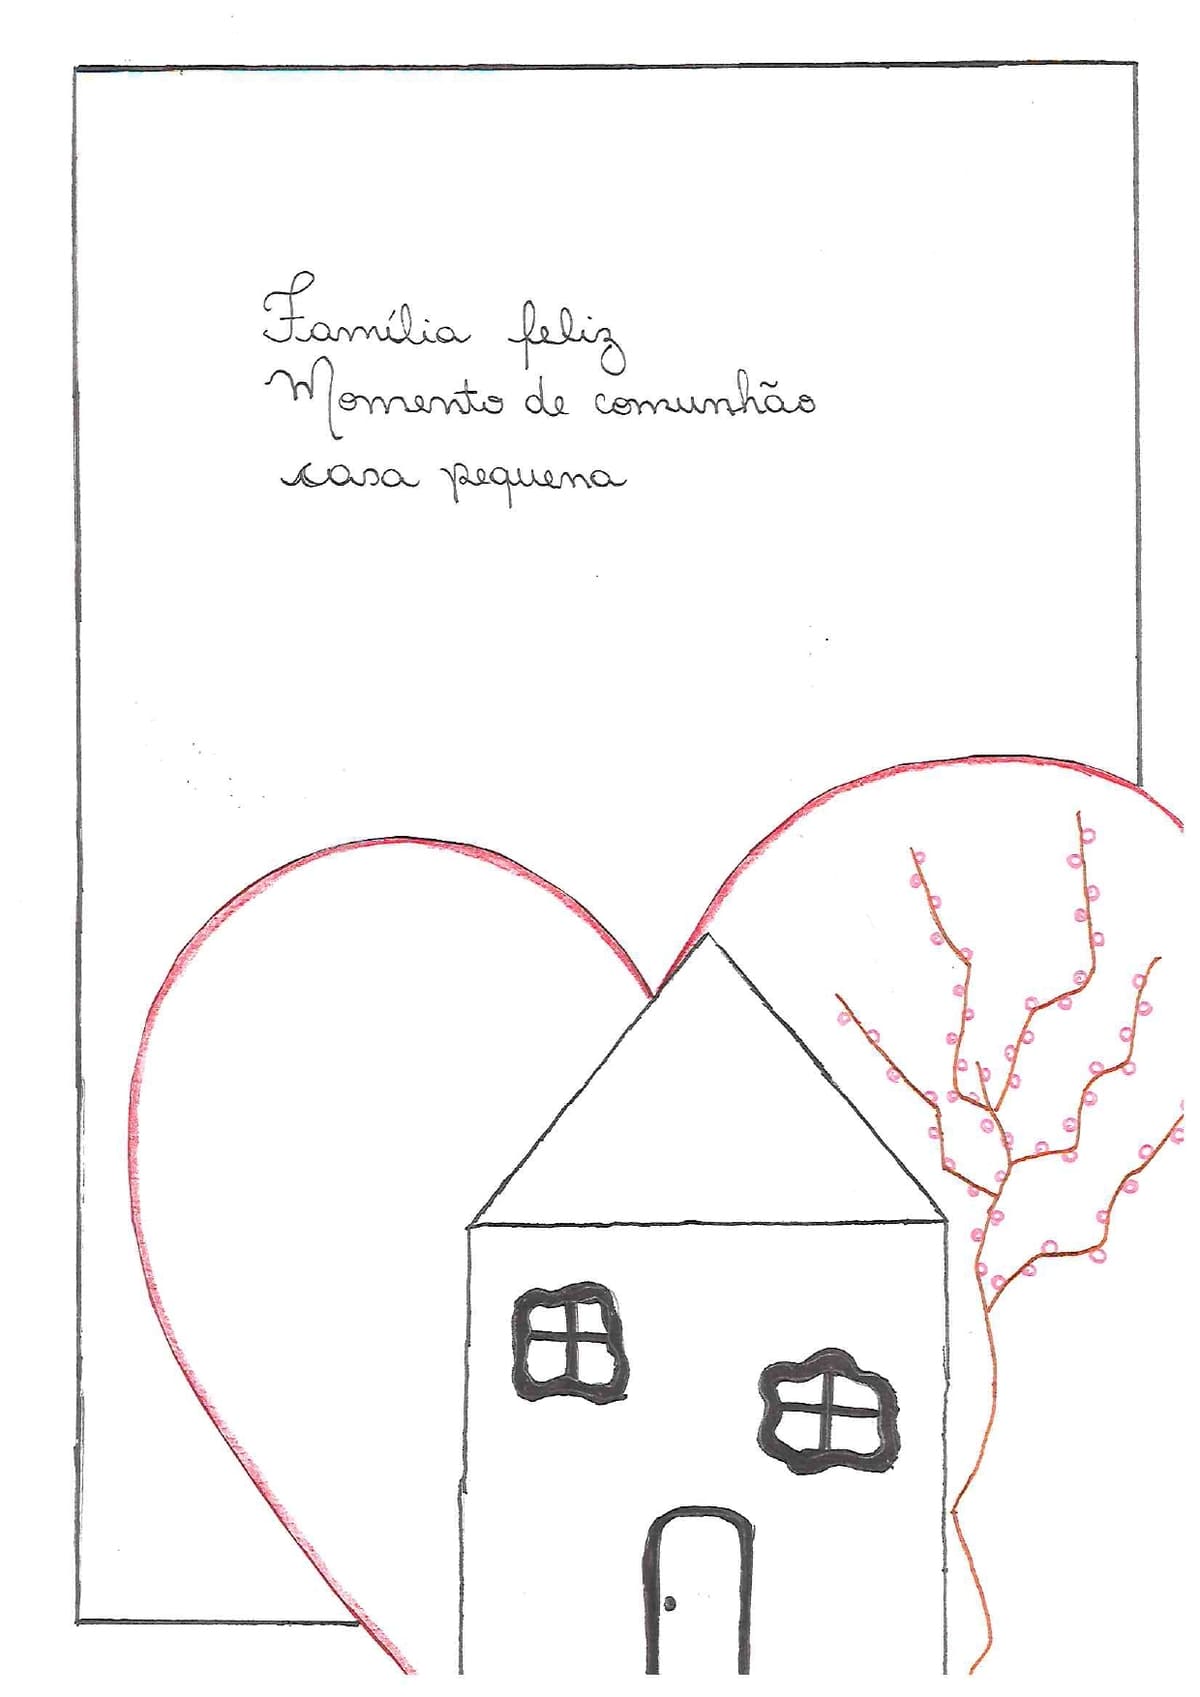 Família feliz
Momento de comunhão
casa pequena